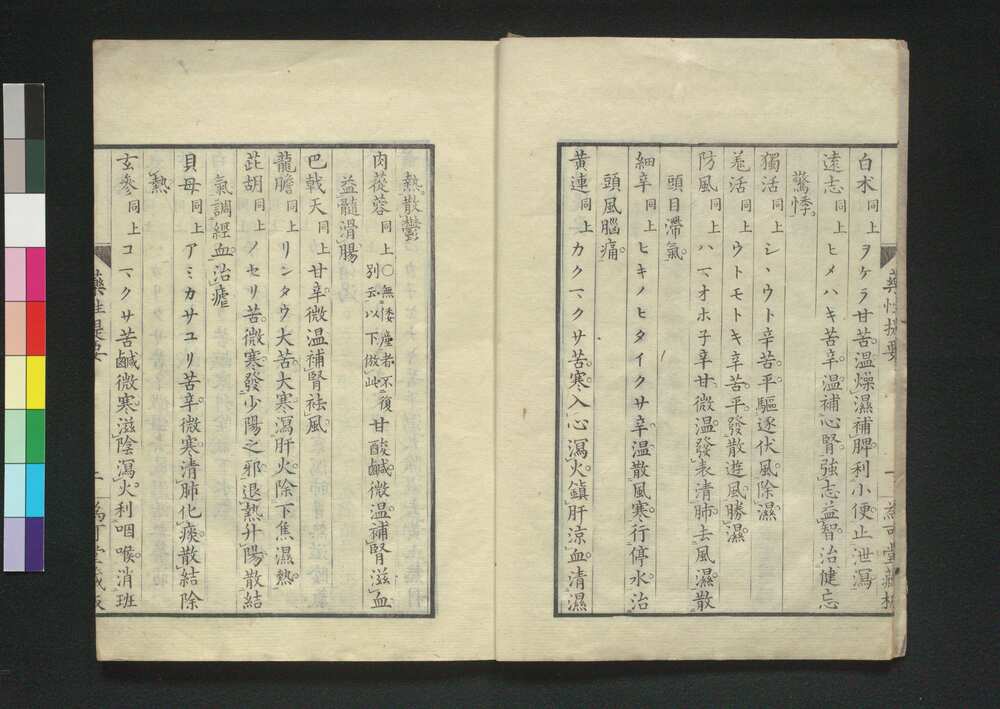 白朮同上 ヲケラ甘苦温燥濕補脾利小便止泄瀉
遠志同上 ヒメハキ苦辛温補心腎強志益智治健忘
驚悸
獨活同上 シヽウト辛苦平驅逐伏風除濕
羗活同上 ウトモトキ辛苦平發散遊風勝濕
防風同上 ハマオホ子辛甘微温發表清肺去風濕散
頭目滯氣
細辛同上 ヒキノヒタイクサ辛温散風寒行停水治
頭風腦痛
黄連同上 カクマクサ苦寒入心瀉火鎮肝涼血清濕
熱散鬱
肉蓯蓉同上○無倭產者不復別示以下倣此 甘酸鹹微温補腎滋血
益髓滑腸
巴戟天同上 甘辛微温補腎祛風
龍膽同上 リンタウ大苦大寒瀉肝火除下焦濕熱
茈胡同上 ノセリ苦微寒發少陽之邪退熱升陽散結
氣調經血治瘧
貝母同上 アミカサユリ苦辛微寒清肺化痰散結除
熱
玄參同上 コマクサ苦鹹微寒滋陰瀉火利咽喉消班
藥性提要